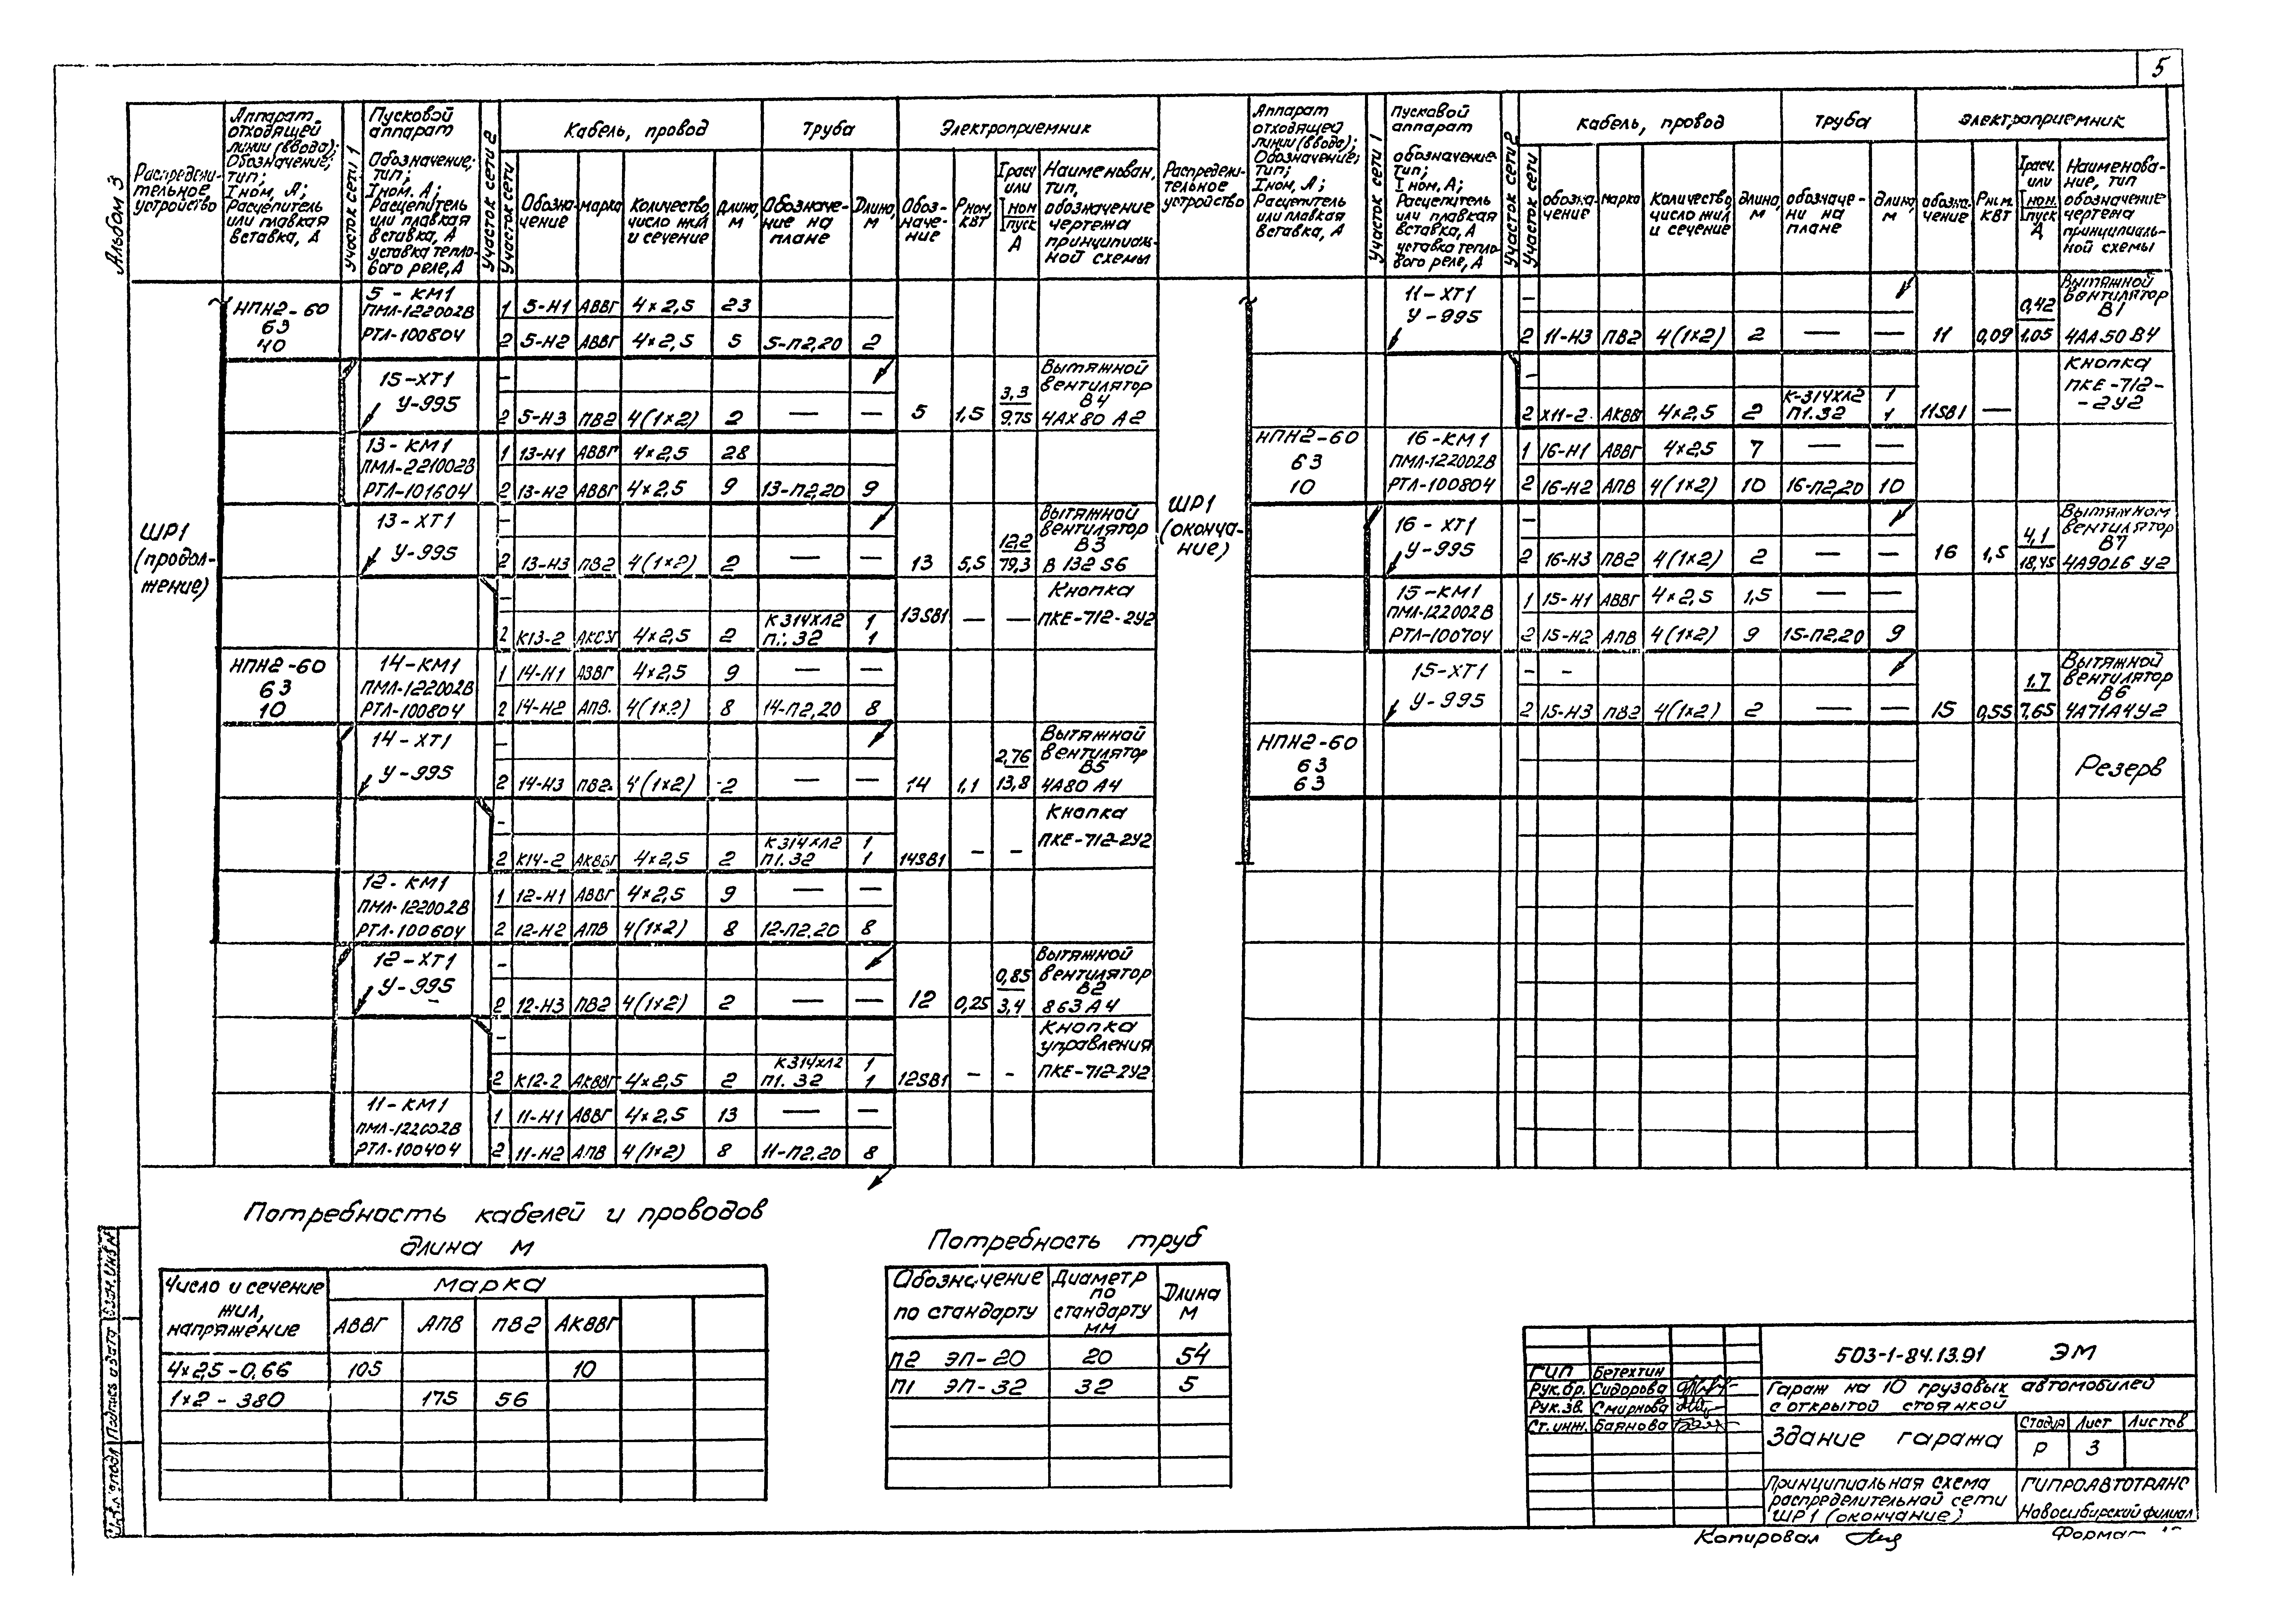 5
Альбом 3
Распредели-
тельное
устройство
Аппарат
отходящей
линии (ввода);
Обозначение;
тип;
Iном, А;
Расцепитель
или плавкая
вставка, А
Участок сети 1
Пусковой
аппарат
Обозначение;
тип;
Iном. А;
Расцепитель
или плавкая
вставка, А
уставка тепло-
вого реле, А
Участок сети 2
Кабель, провод
Участок сети
Обозна-
чение
марка
Количество,
число жил
и сечение
Длина,
м
Труба
Обозначе-
ние на
плане
Длина,
м
Электроприемник
Обоз-
наче-
ние
Рном,
кВт
Iрасч
или
Iном
Iпуск
А
Наименован,
тип,
обозначение
чертежа
принципиаль-
ной схемы
ШР1
(продол-
жение)
НПН2-60
63
40
5 - КМ1
ПМЛ-122002В
РТЛ-100804
1 5-Н1 АВВГ 4×2,5 23
2 5-Н2 АВВГ 4×2,5 5 5-П2,20 2
15-ХТ1
У-995
-
2 5-Н3 ПВ2 4(1×2) 2 — — 5 1,5 3,3 9,75
Вытяжной
вентилятор
В4
4АХ80 А2
13-КМ1
ПМЛ-221002В
РТЛ-101604
1 13-Н1 АВВГ 4×2,5 28
2 13-Н2 АВВГ 4×2,5 9 13-П2,20 9
13-ХТ1
У-995
-
2 13-Н3 ПВ2 4(1×2) 2 — — 13 5,5 12,2 79,3
Вытяжной
вентилятор
В3
В 132 S6
-
2 К13-2 4×2,5 2 К314ХЛ2 1
32 1
13SB1 — —
Кнопка
ПКЕ-712-2У2
НПН2-60
63
10
14-КМ1
ПМЛ-122002В
РТЛ-100804
1 14-Н1 АВВГ 4×2,5 9 — —
2 14-Н2 АПВ 4(1×2) 8 14-П2,20 8
14-ХТ1
У-995
-
2 14-Н3 ПВ2 4(1×2) 2 — — 14 1,1 2,76 13,8
Вытяжной
вентилятор
В5
4А80 А4
-
2 К14-2 АКВВГ 4×2,5 2 К314ХЛ2 1
П1.32 1
14SB1 — —
Кнопка
ПКЕ-712-2У2
12-КМ1
ПМЛ-122002В
РТЛ-100604
1 12-Н1 АВВГ 4×2,5 9 — —
2 12-Н2 АПВ 4(1×2) 8 12-П2.20 8
12-ХТ1
У-995
-
2 12-Н3 ПВ2 4(1×2) 2 — — 12 0,25 0,85 3,4
Вытяжной
вентилятор
В2
863А4
-
2 К12-2 АКВВГ 4×2,5 2 К314ХЛ2 1
П1. 32 1
12SB1 — -
Кнопка
управления
ПКЕ-712-2У2
11-КМ1
ПМЛ-122002В
РТЛ-100404
1 11-Н1 АВВГ 4×2,5 13 — —
2 11-Н2 АПВ 4(1×2) 8 11-П2.20 8
Распредели-
тельное
устройство
Аппарат
отходящей
линии (ввода);
Обозначение;
тип;
Iном, А;
Расцепитель
или плавкая
вставка, А
Участок сети 1
Пусковой
аппарат
обозначение
Тип;
Iном, А;
Расцепитель
или плавкая
вставка, А
уставка тепло-
вого реле, А
Участок сети 2
Кабель, провод
Участок сети
обозна-
чение
марка
Количество,
число жил
и сечение
Длина,
м
труба
обозначе-
ни на
плане
Длина,
м
электроприемник
обозна-
чение
Рн.м.
кВт
Iрасч.
или
Iном.
Iпуск
А
Наименова-
ние, тип
обозначение
чертежа
принципиаль-
ной схемы
ШР1
(оконча-
ние)
11-ХТ1
У-995
-
2 11-Н3 ПВ2 4(1×2) 2 — — 11 0,09 0,42 1,05
Вытяжной
вентилятор
В1
4АА50В4
-
2 Х11-2 АКВВГ 4×2,5 2 К-314ХЛ2 1
П1.32 1
11SB1 —
Кнопка
ПКЕ-712-
-2У2
НПН2-60
63
10
16-КМ1
ПМЛ-122002В
РТЛ-100804
1 16-Н1 АВВГ 4×2,5 7 — —
2 16-Н2 АПВ 4(1×2) 10 16-П2,20 10
16-ХТ1
У-995
-
2 16-Н3 ПВ2 4(1×2) 2 — — 16 1,5 4,1 18,45
Вытяжном
вентилятор
В7
4А90L6 У2
15-КМ1
ПМЛ-122002В
РТЛ-100704
1 15-Н1 АВВГ 4×2,5 1,5 — —
2 15-Н2 АПВ 4(1×2) 9 15-П2,20 9
15-ХТ1
У-995
- -
2 15-Н3 ПВ2 4(1×2) 2 — — 15 0,55 1,7 7,65
Вытяжной
вентилятор
В6
4А71А4У2
НПН2-60
63
63
Резерв
Потребность кабелей и проводов
длина м
Число и сечение
жил,
напряжение
марка
АВВГ АПВ ПВ2 АКВВГ
4×2,5-0,66 105 10
1×2 - 380 175 56
Потребность труб
Обозначение
по стандарту
Диаметр
по
стандарту
мм
Длина
м
П2 ЭП-20 20 54
П1 ЭП-32 32 5
503-1-84.13.91 ЭМ
ГИП Бетехтин
Рук.бр. Сидорова
Рук.зв. Смирнова
Ст.инж. Баянова
Гараж на 10 грузовых автомобилей
с открытой стоянкой
Здание гаража
Стадия Лист Листов
Р 3
Принципиальная схема
распределительной сети
ШР1 (окончание)
ГИПРОАВТОТРАНС
Новосибирский филиал
Копировал
Формат
Подпись и дата
Взам. инв. №